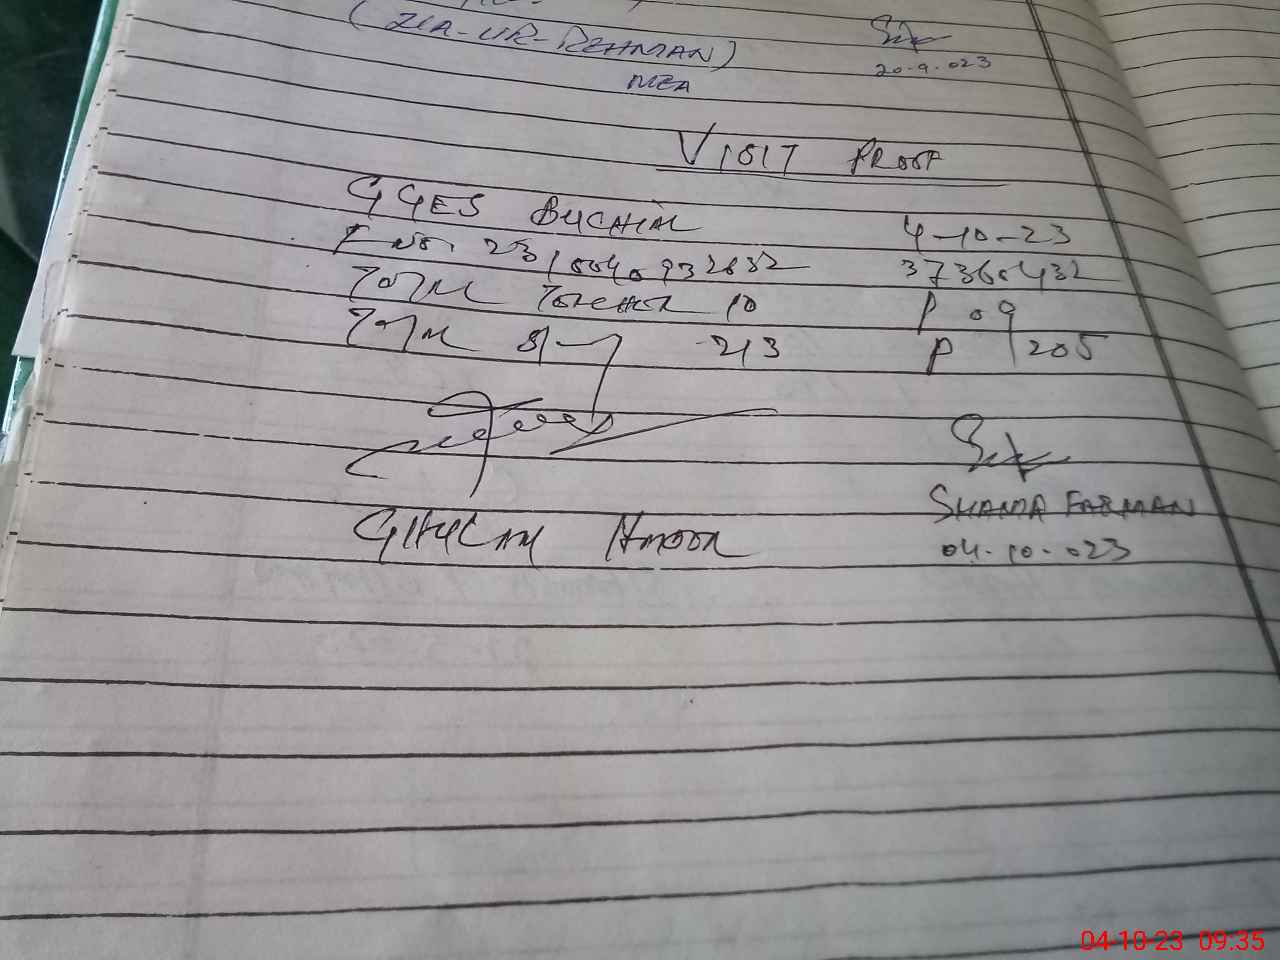 (ZIA-UR-REHMAN)
MEA
20-9-023
VISIT PROOF
GGES BUCHAL 4-10-23
37360432
TOTAL TEACHER 10 P 09
TOTAL ST 213 P 205
GHULAM
SHAMA FARMAN
04-10-023
04-10-23 09:35